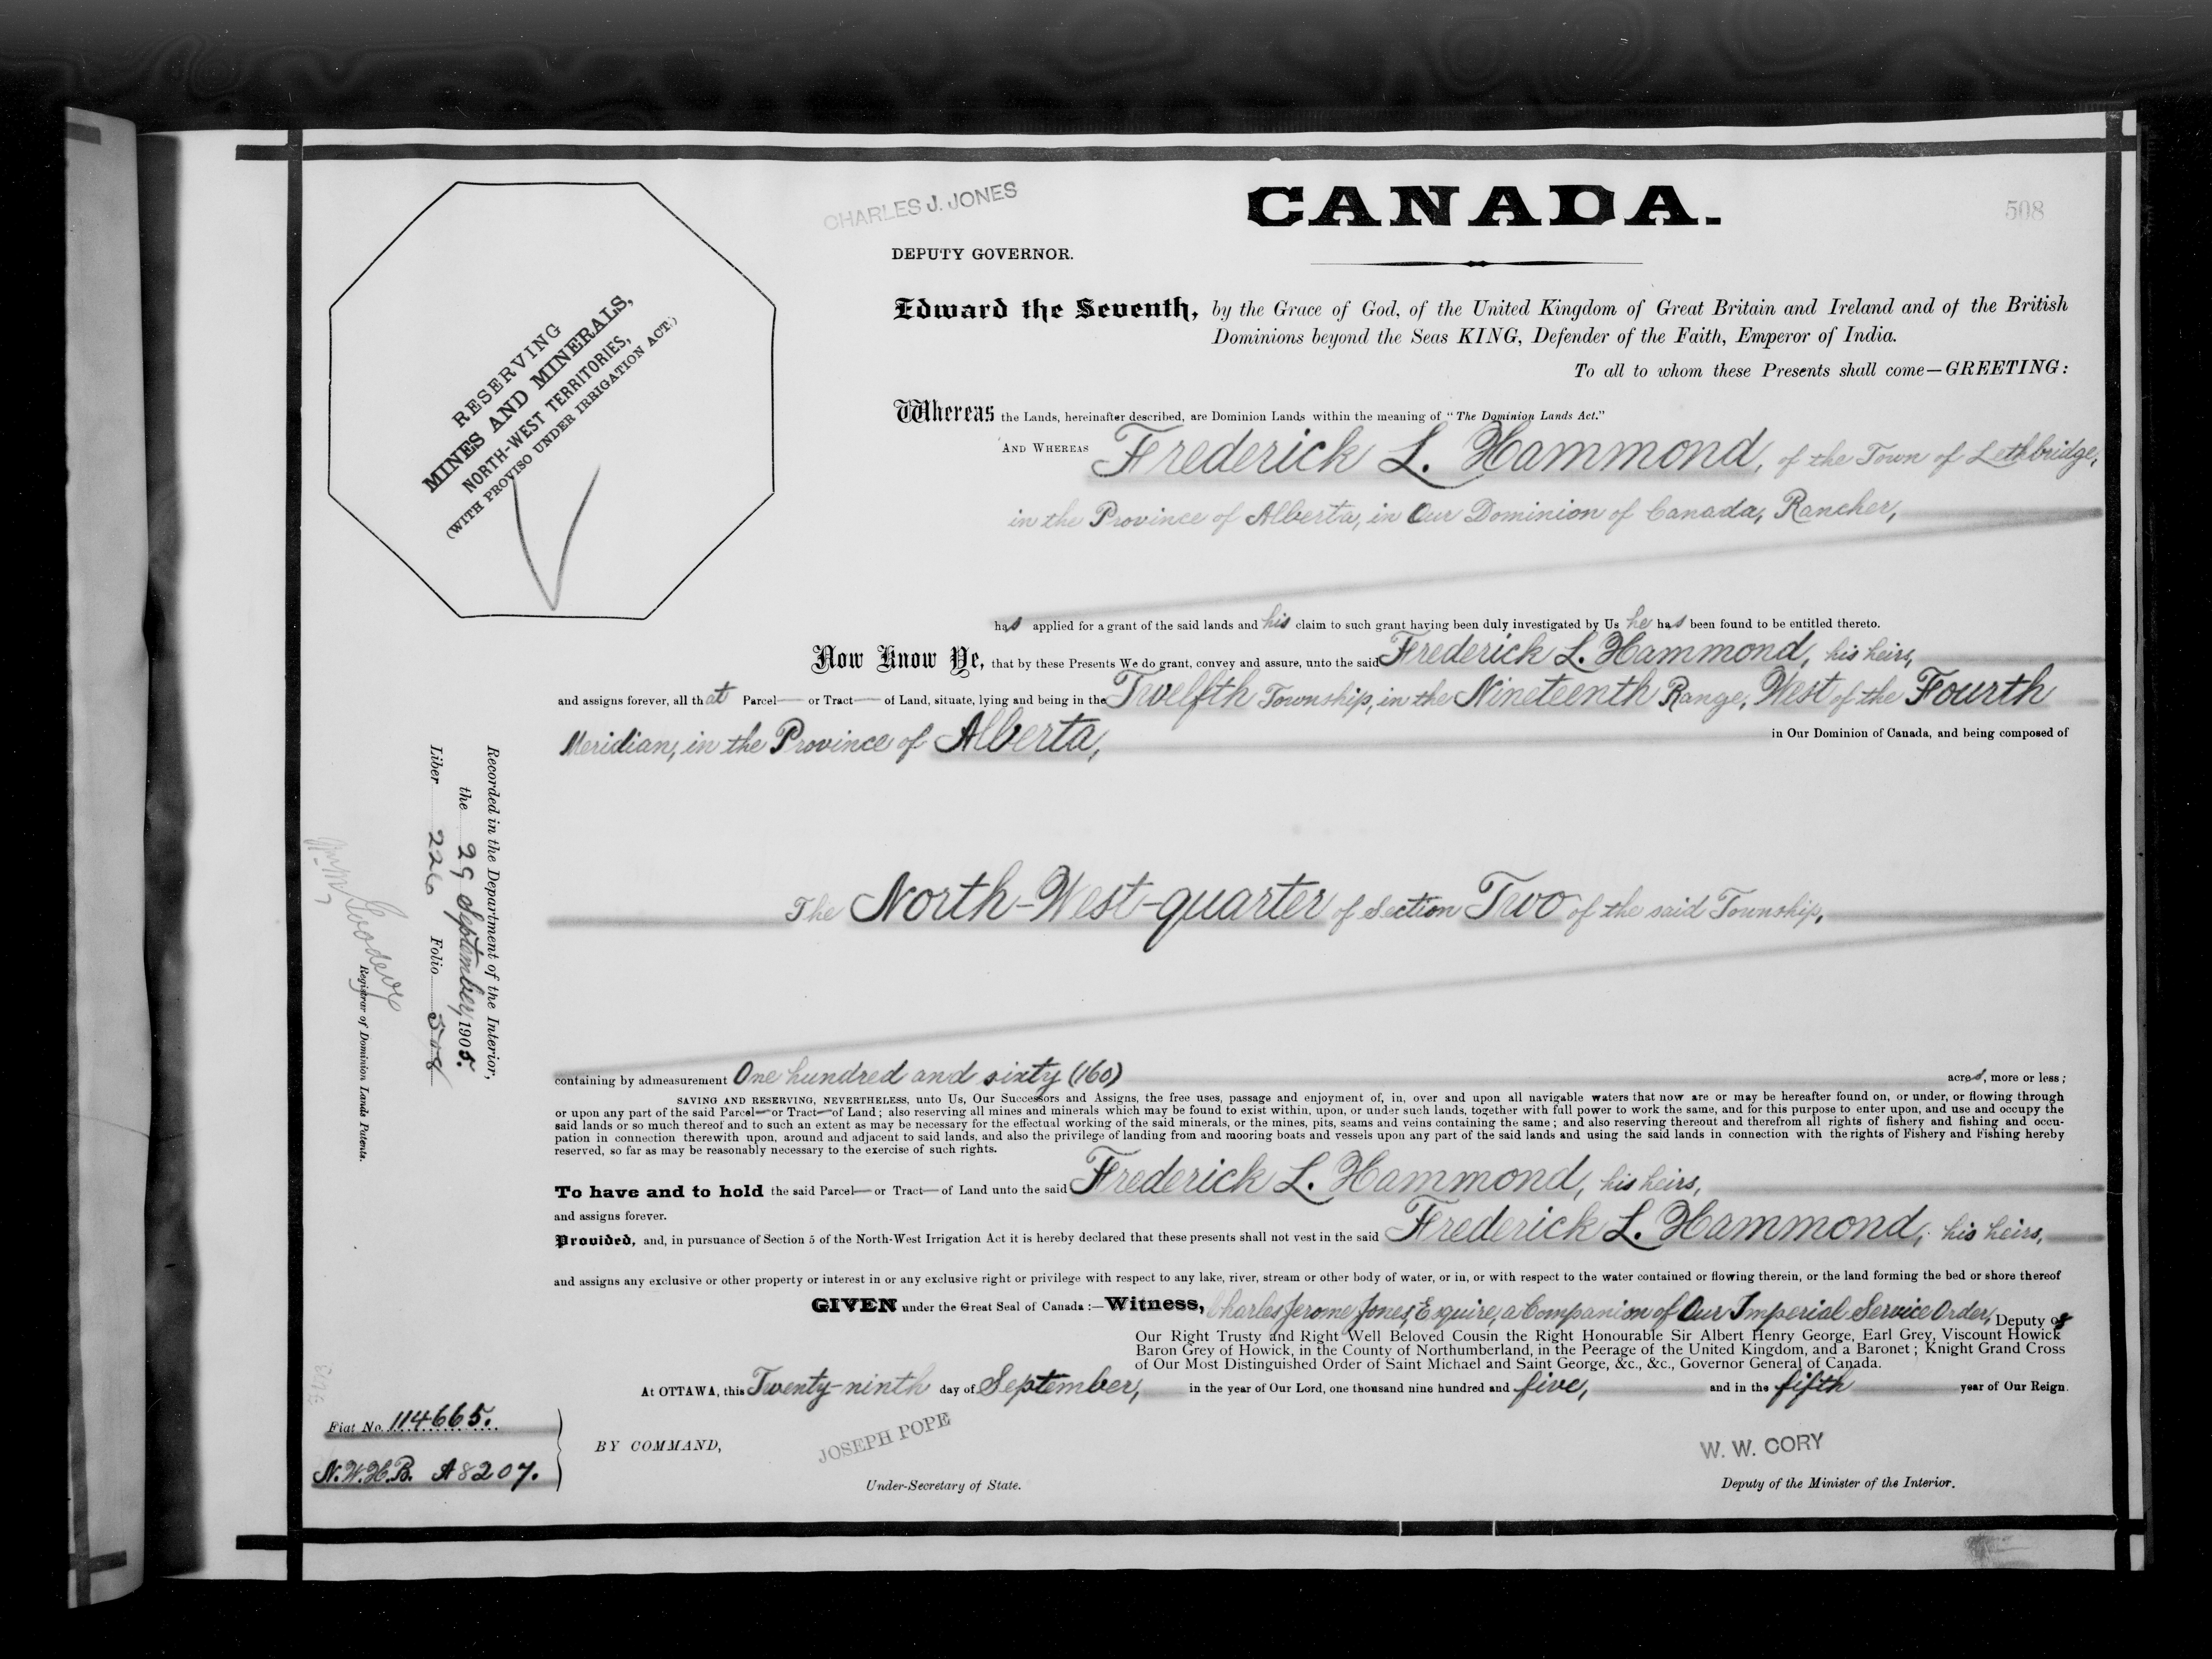 CHARLES J. JONES
CANADA.
508
DEPUTY GOVERNOR.
RESERVING
MINES AND MINERALS,
NORTH-WEST TERRITORIES,
(WITH PROVISO UNDER IRRIGATION ACT.)
Edward the Seventh, by the Grace of God, of the United Kingdom of Great Britain and Ireland and of the British
Dominions beyond the Seas KING, Defender of the Faith, Emperor of India.
To all to whom these Presents shall come—GREETING:
Whereas the Lands, hereinafter described, are Dominion Lands within the meaning of "The Dominion Lands Act."
AND WHEREAS Frederick L. Hammond, of the Town of Lethbridge,
in the Province of Alberta, in Our Dominion of Canada, Rancher,
has applied for a grant of the said lands and his claim to such grant having been duly investigated by Us he has been found to be entitled thereto.
Now Know Ye, that by these Presents We do grant, convey and assure, unto the said Frederick L. Hammond, his heirs,
and assigns forever, all that Parcel— or Tract— of Land, situate, lying and being in the Twelfth Township, in the Nineteenth Range, West of the Fourth
Meridian, in the Province of Alberta, in Our Dominion of Canada, and being composed of
The North-West-quarter of Section Two of the said Township,
containing by admeasurement One hundred and sixty (160) acres, more or less;
SAVING AND RESERVING, NEVERTHELESS, unto Us, Our Successors and Assigns, the free uses, passage and enjoyment of, in, over and upon all navigable waters that now are or may be hereafter found on, or under, or flowing through
or upon any part of the said Parcel—or Tract—of Land; also reserving all mines and minerals which may be found to exist within, upon, or under such lands, together with full power to work the same, and for this purpose to enter upon, and use and occupy the
said lands or so much thereof and to such an extent as may be necessary for the effectual working of the said minerals, or the mines, pits, seams and veins containing the same; and also reserving thereout and therefrom all rights of fishery and fishing and occu-
pation in connection therewith upon, around and adjacent to said lands, and also the privilege of landing from and mooring boats and vessels upon any part of the said lands and using the said lands in connection with the rights of Fishery and Fishing hereby
reserved, so far as may be reasonably necessary to the exercise of such rights.
To have and to hold the said Parcel— or Tract— of Land unto the said Frederick L. Hammond, his heirs,
and assigns forever.
Provided, and, in pursuance of Section 5 of the North-West Irrigation Act it is hereby declared that these presents shall not vest in the said Frederick L. Hammond, his heirs,
and assigns any exclusive or other property or interest in or any exclusive right or privilege with respect to any lake, river, stream or other body of water, or in, or with respect to the water contained or flowing therein, or the land forming the bed or shore thereof
GIVEN under the Great Seal of Canada:—Witness, Charles Jerome Jones, Esquire, a Companion of Our Imperial Service Order, Deputy of
Our Right Trusty and Right Well Beloved Cousin the Right Honourable Sir Albert Henry George, Earl Grey, Viscount Howick
Baron Grey of Howick, in the County of Northumberland, in the Peerage of the United Kingdom, and a Baronet; Knight Grand Cross
of Our Most Distinguished Order of Saint Michael and Saint George, &c., &c., Governor General of Canada.
At OTTAWA, this Twenty-ninth day of September, in the year of Our Lord, one thousand nine hundred and five, and in the fifth year of Our Reign.
BY COMMAND,
JOSEPH POPE
Under-Secretary of State.
W. W. CORY
Deputy of the Minister of the Interior.
Fiat No. 114665.
N.W.H.B. A8207.
Recorded in the Department of the Interior,
the 29 September, 1905.
Liber 226 Folio 508
Registrar of Dominion Lands Patents.